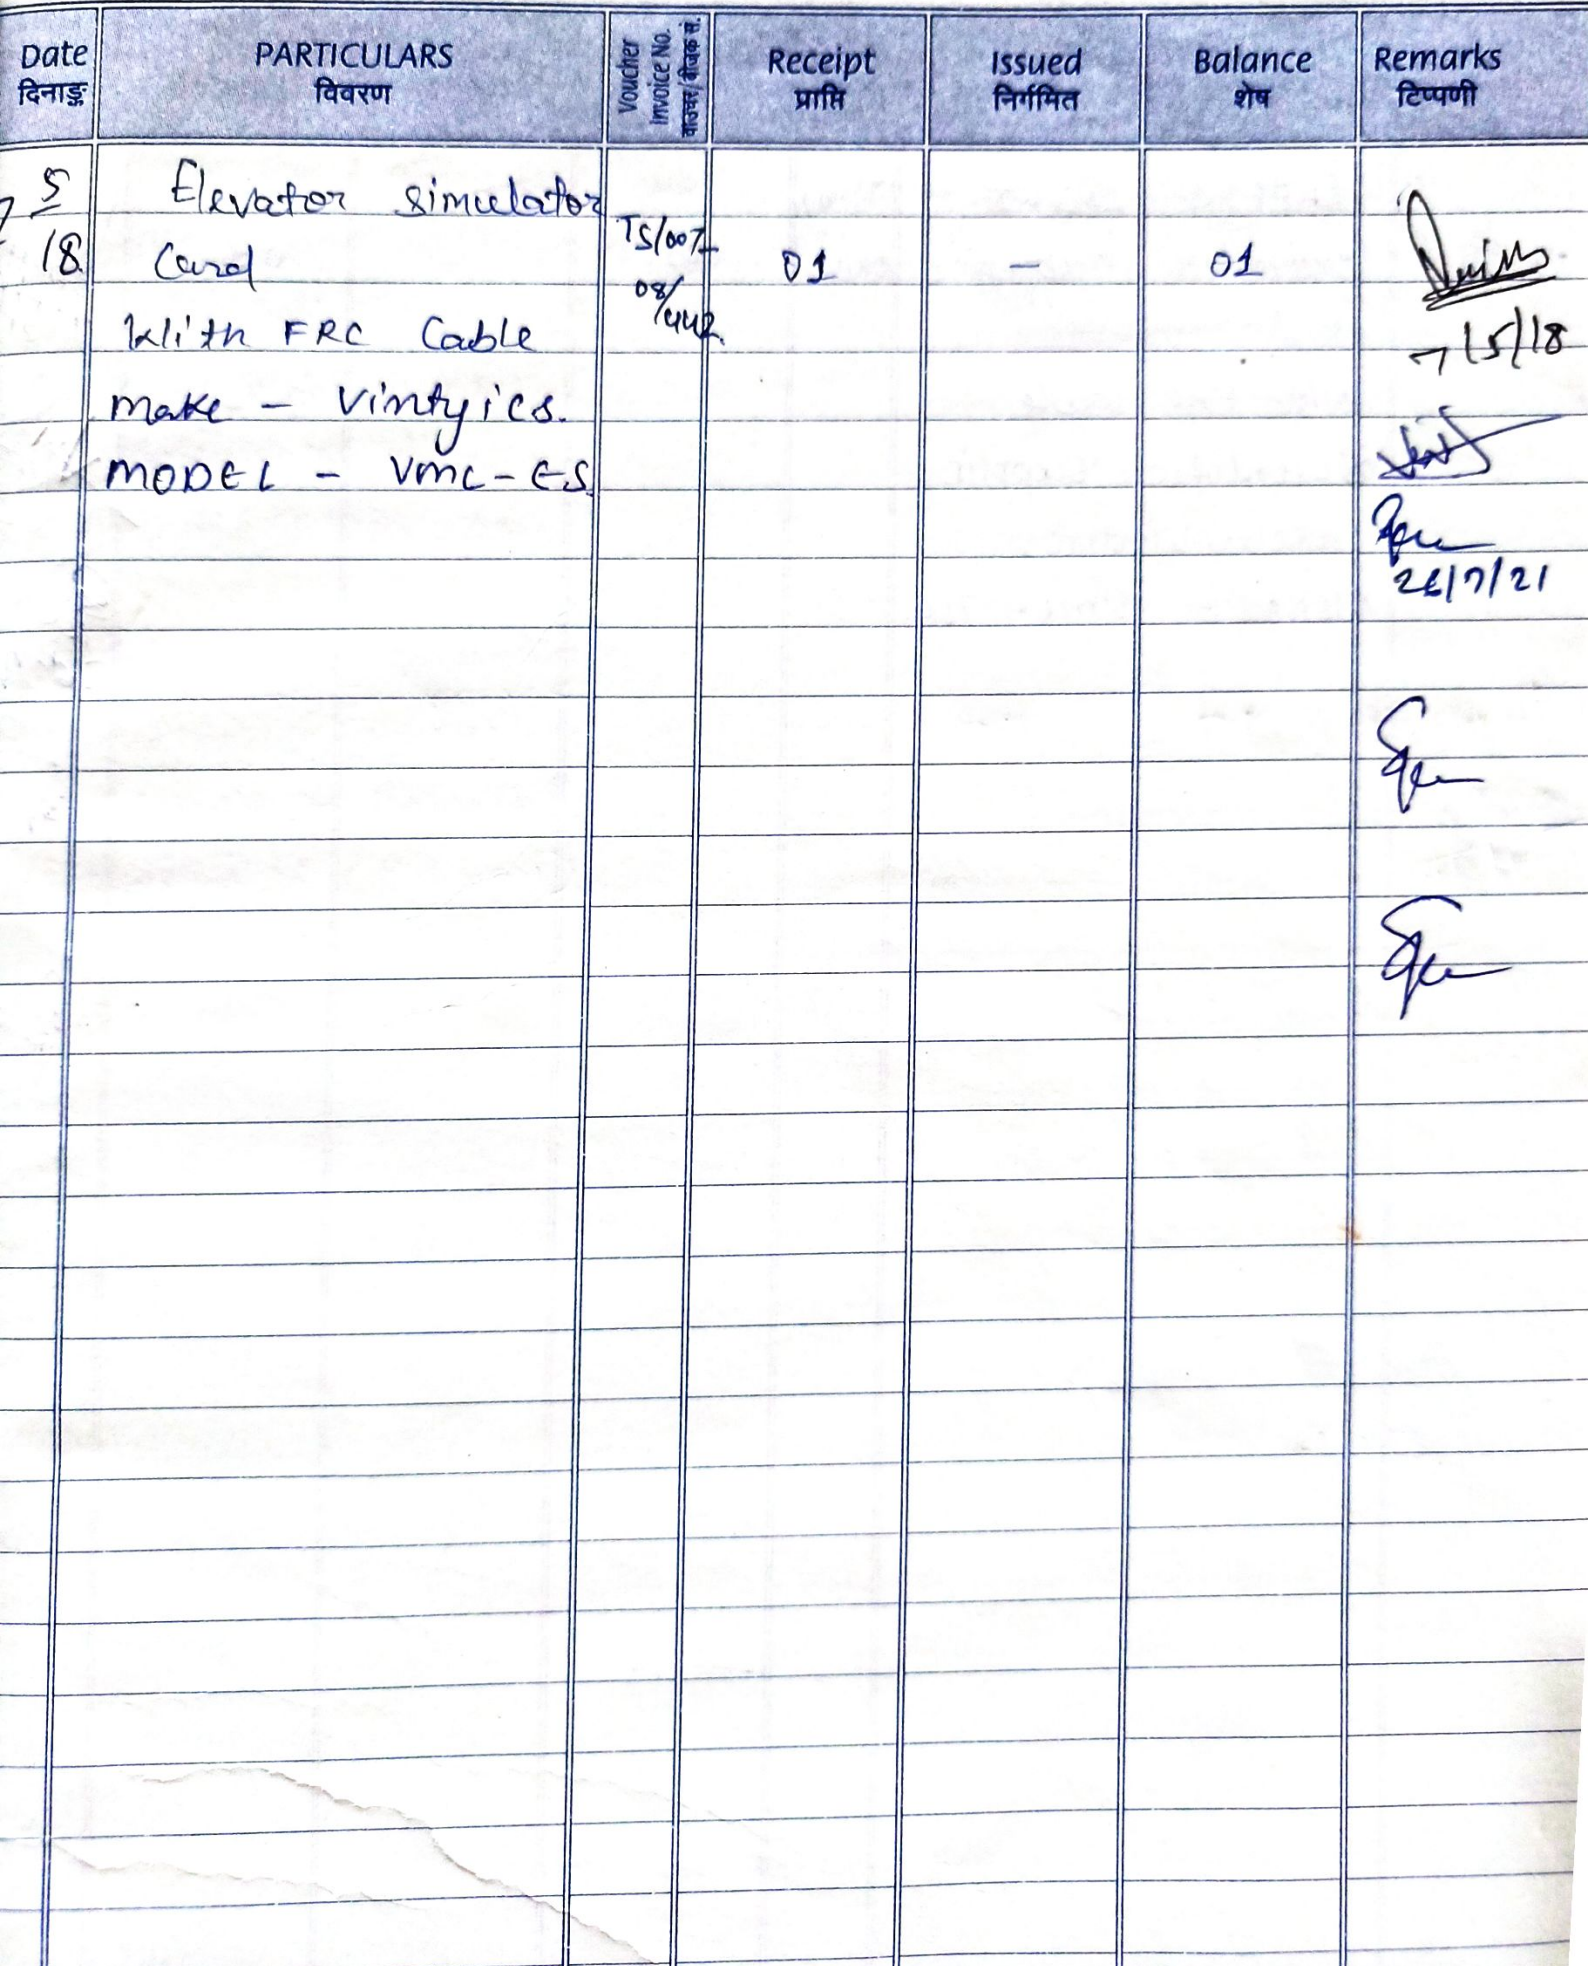 Date
दिनाङ्क
PARTICULARS
विवरण
Voucher
Invoice No.
वाउचर/बीजक सं.
Receipt
प्राप्ति
Issued
निर्गमित
Balance
शेष
Remarks
टिप्पणी
5
18
Elevator Simulator
Card
With FRC Cable
make - Vintyics.
MODEL - VMC-ES
TS/007
08/442
01
-
01
7/5/18
26/7/21